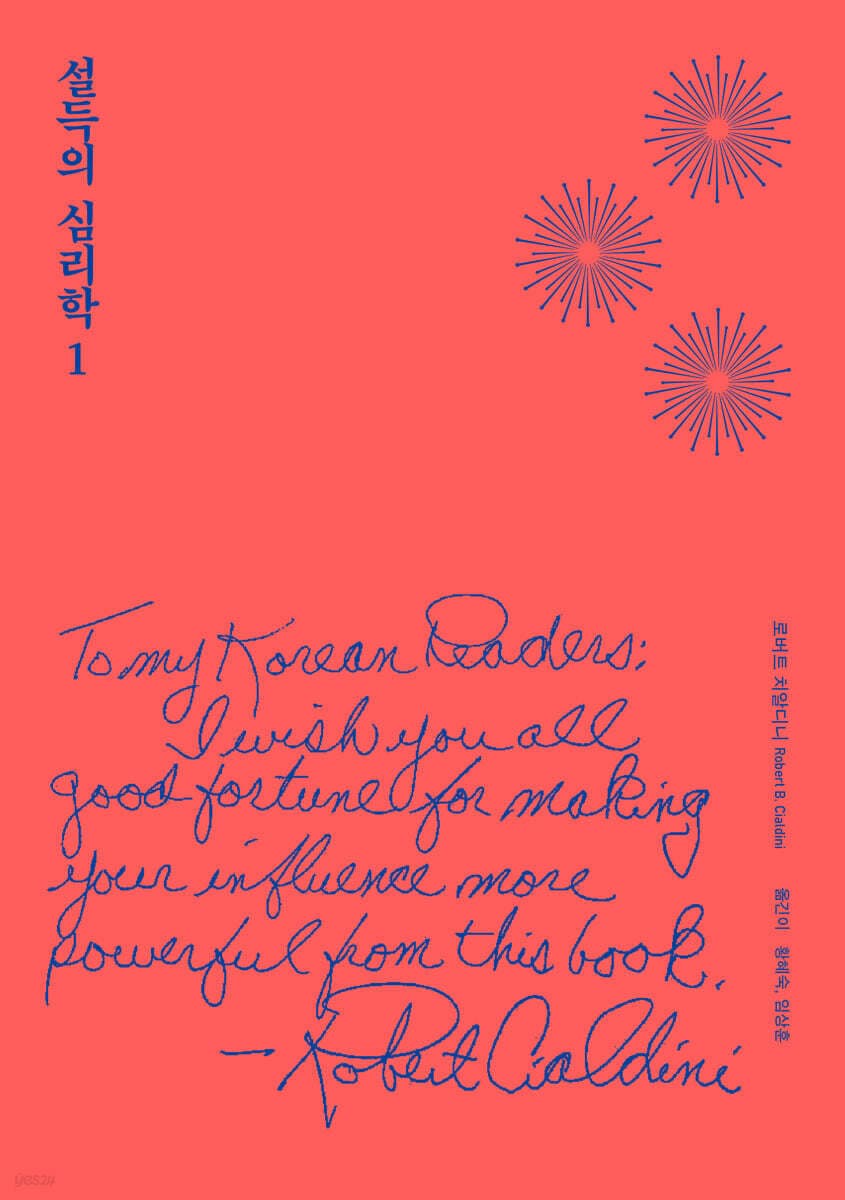 설득의 심리학 1
To my Korean Readers:
I wish you all
good fortune for making
your influence more
powerful from this book.
— Robert Cialdini
로버트 치알디니 Robert B. Cialdini
옮긴이 황혜숙, 임상훈
yes24